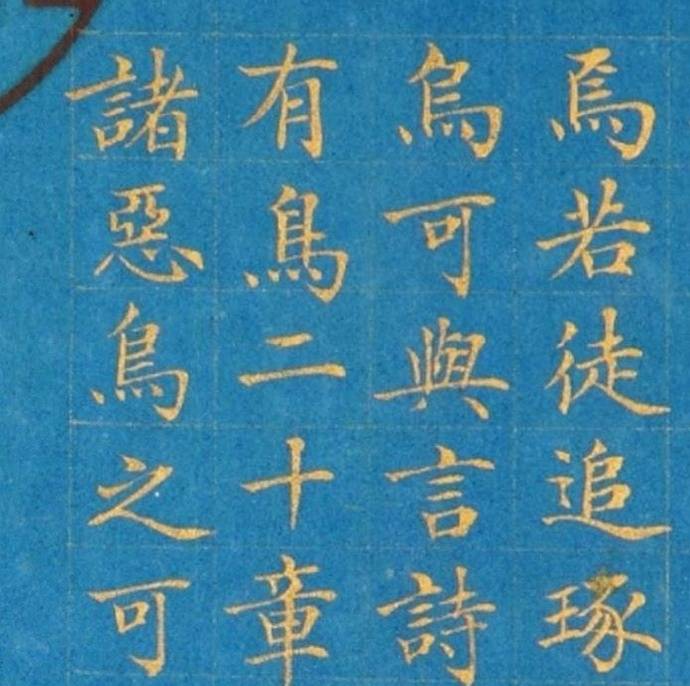 焉若徒追琢
烏可與言詩
有鳥二十章
諸惡鳥之可